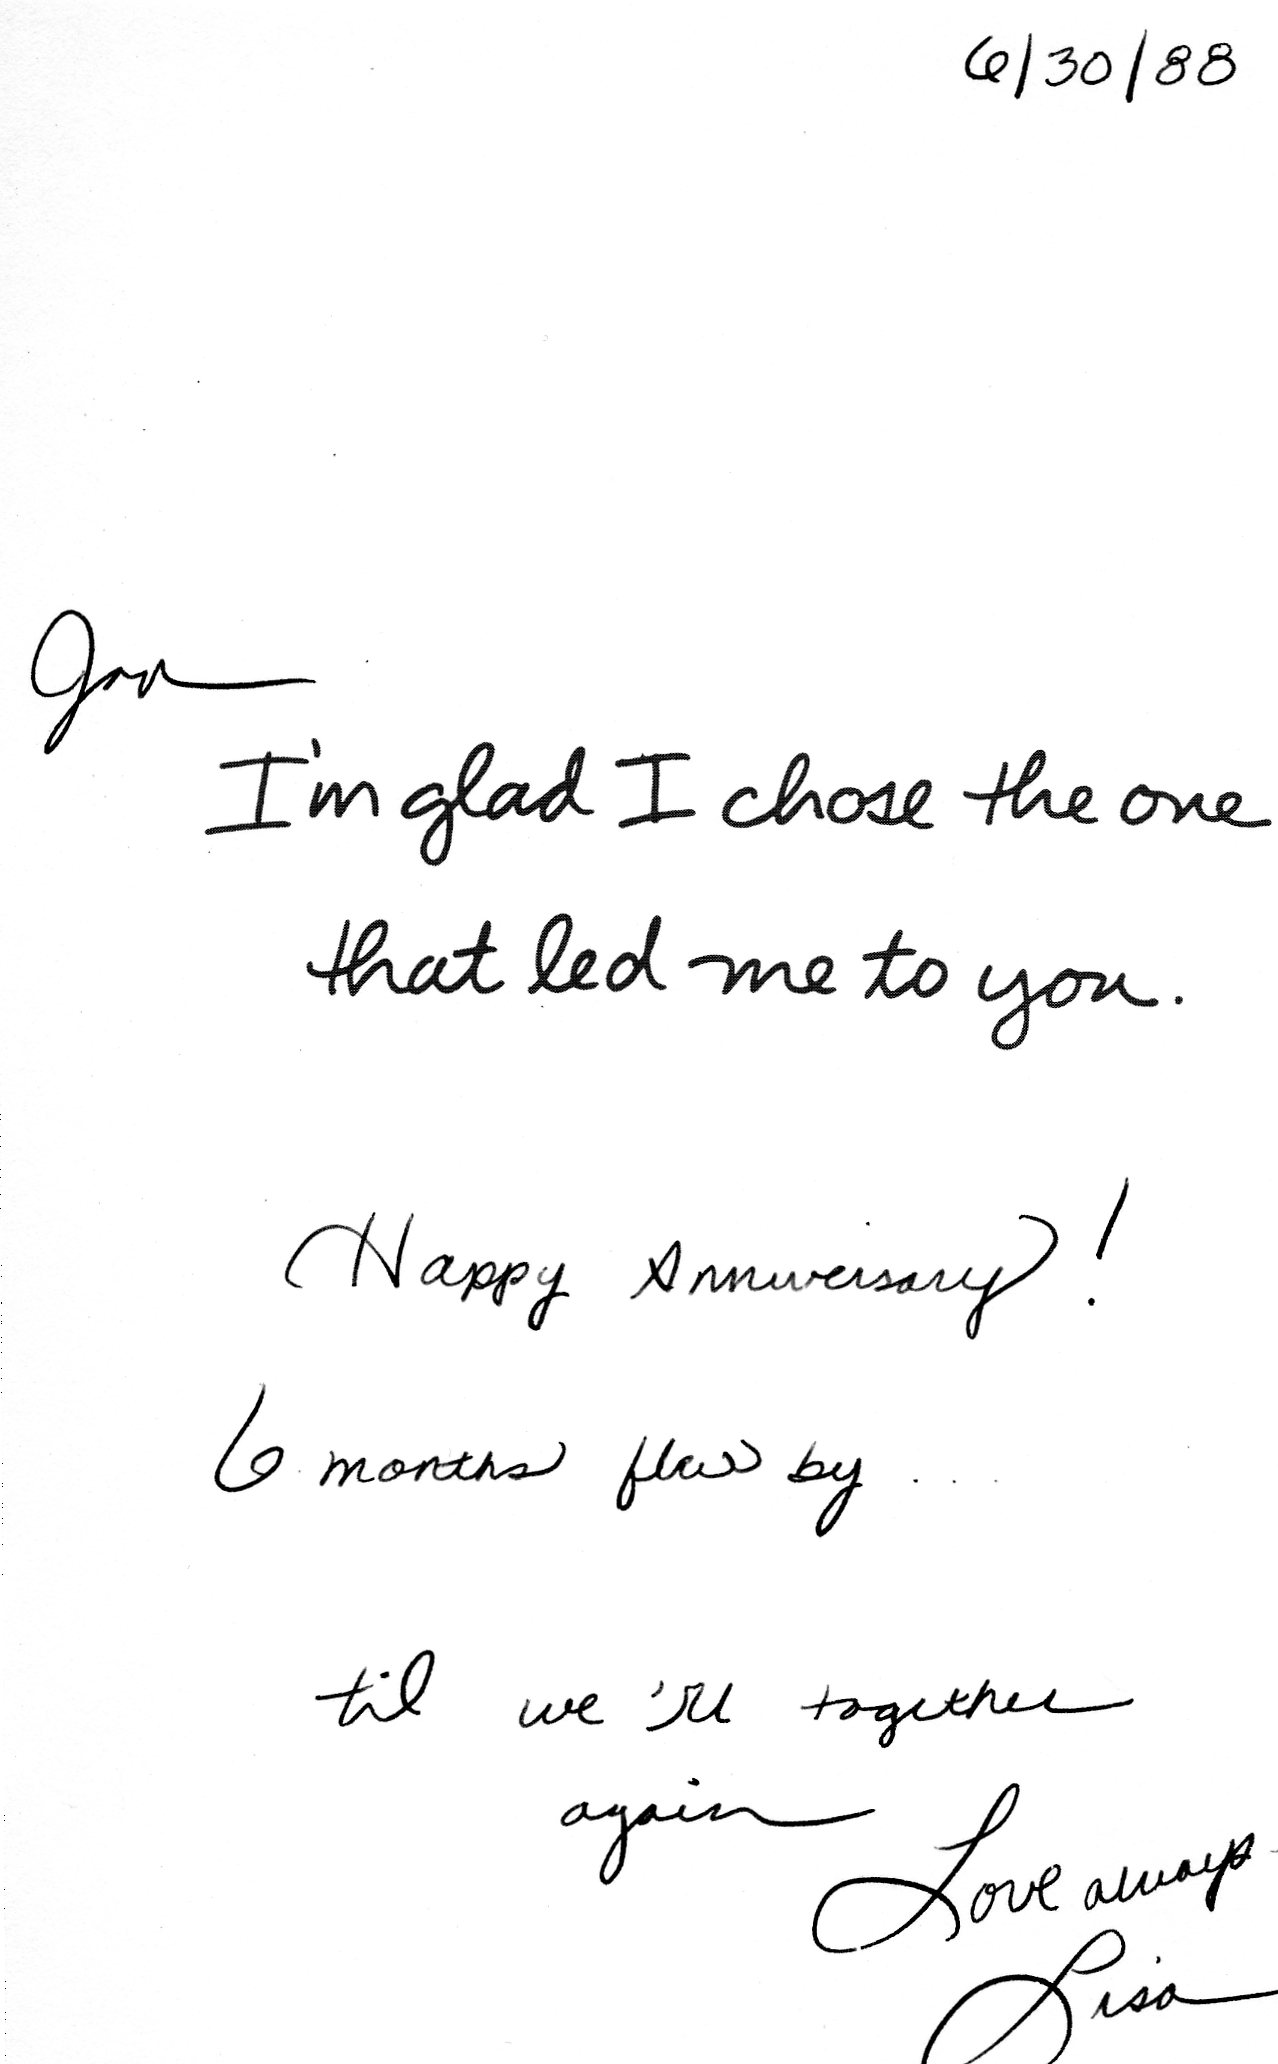 6/30/88
I'm glad I chose the one
that led me to you.
Happy Anniversary!
6 months flew by ....
til we'll together
again
Love always
Lisa